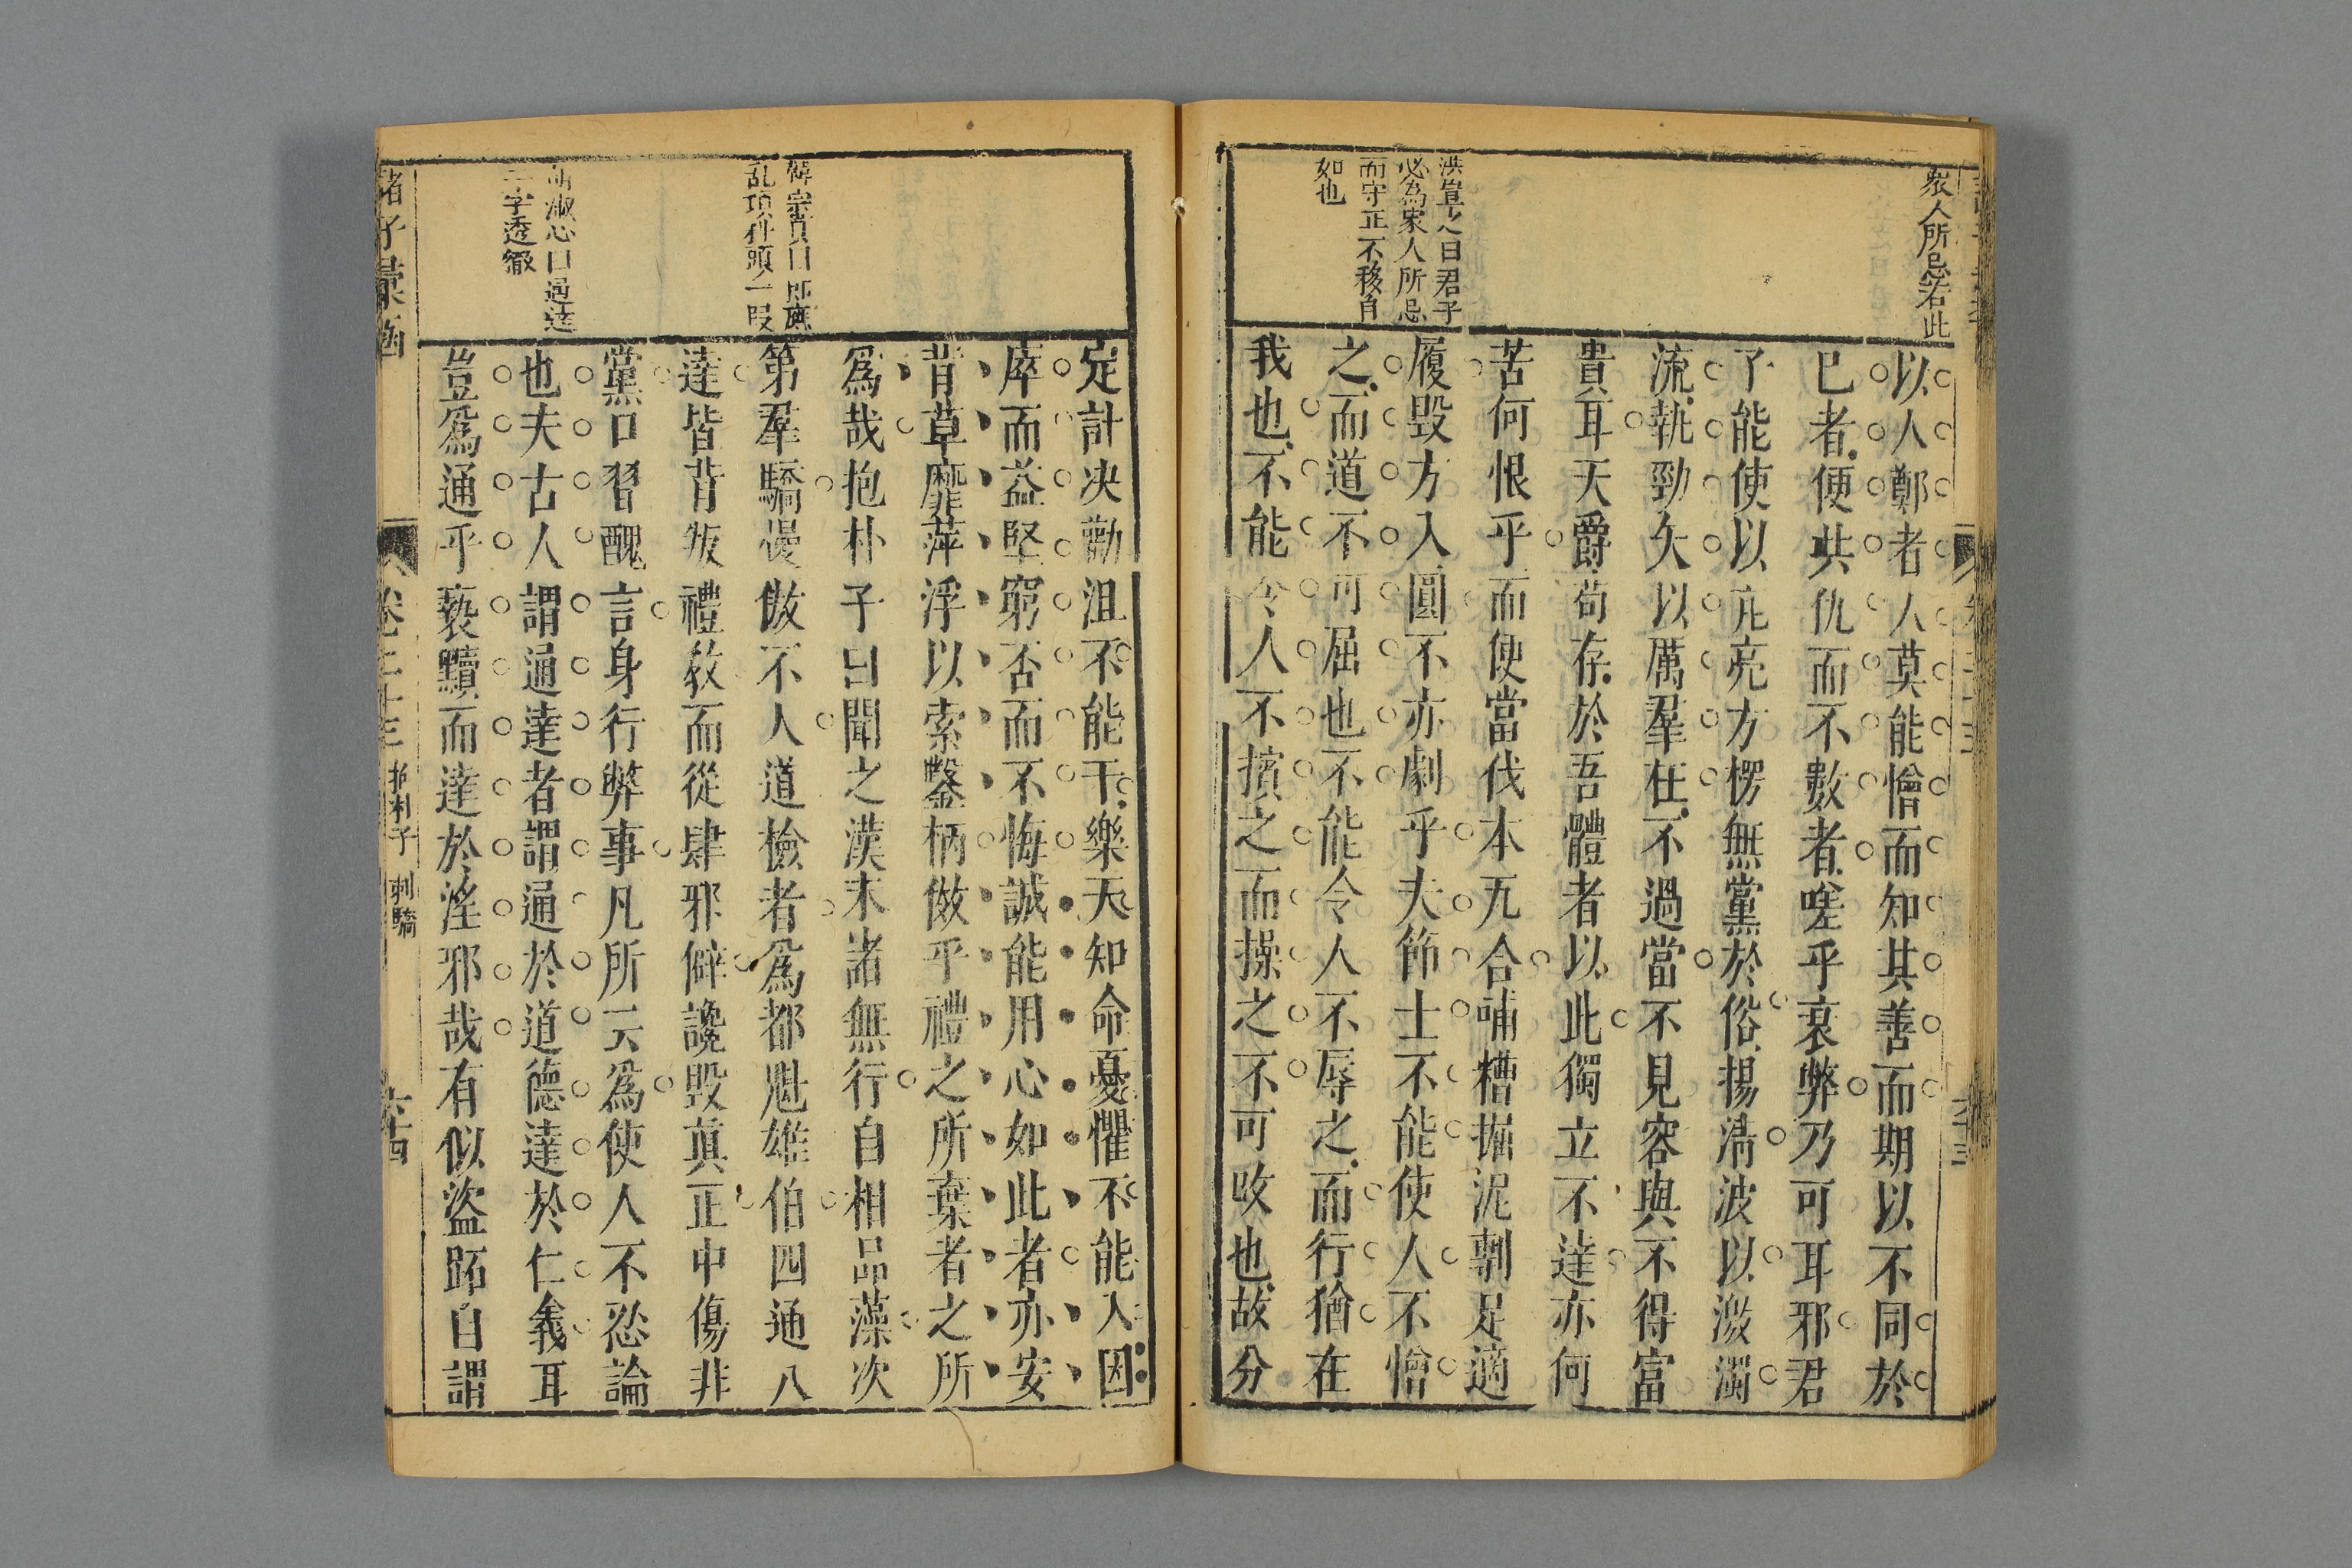 衆人所忌若此
以人鄭者人莫能憎而知其善而期以不同於
巳者便共仇而不數者嗟乎衰弊乃可耳邪君
子能使以亢亮方楞無黨於俗揚清波以激濁
流執勁矢以厲羣枉不過當不見容與不得富
貴耳天爵苟存於吾體者以此獨立不達亦何
苦何恨乎而便當伐本瓦合餔糟掘泥剸足適
履毀方入圓不亦劇乎夫節士不能使人不憎
之而道不可屈也不能令人不辱之而行猶在
我也不能令人不擯之而操之不可攺也故分
洪豈之曰君子
必為衆人所忌
而守正不移自
如也
定計决勸沮不能干樂天知命憂懼不能入困
瘁而益堅窮否而不悔誠能用心如此者亦安
肯草靡萍浮以索鑿枘傚乎禮之所棄者之所
爲哉抱朴子曰聞之漢末諸無行自相品藻次
第羣驕慢傲不入道檢者爲都魁雄伯四通八
達皆背叛禮敎而從肆邪僻讒毀眞正中傷非
黨口習醜言身行弊事凡所云爲使人不忍論
也夫古人謂通達者謂通於道德達於仁義耳
豈爲通乎褻黷而達於淫邪哉有似盜跖自謂
乱項科頭一叚
二字透徹
諸子彙函
卷二十三
抱朴子
刺驕
六十四